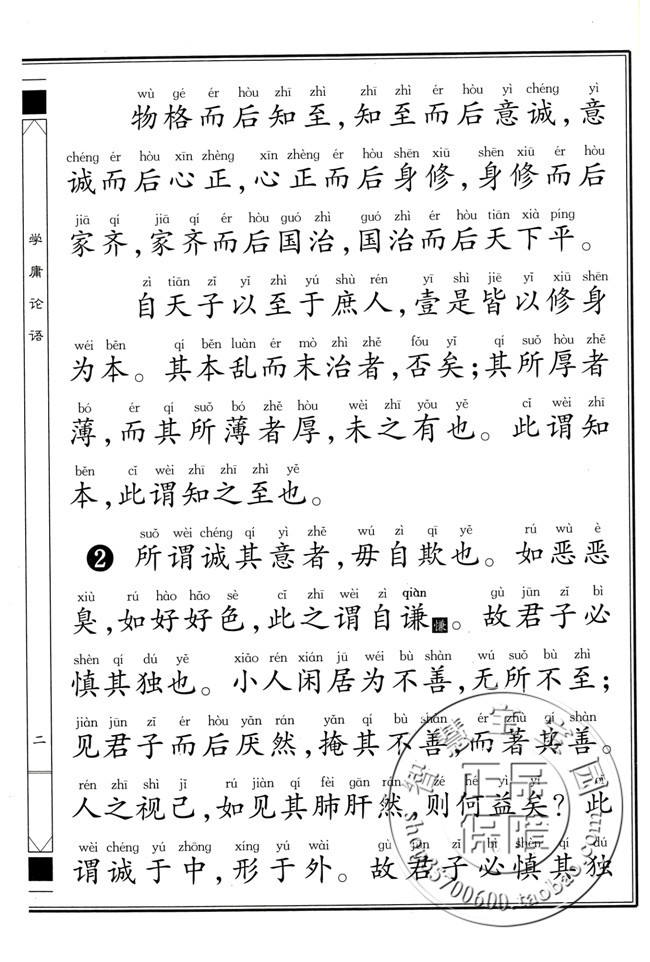 wù gé ér hòu zhī zhì zhī zhì ér hòu yì chéng yì
物格而后知至,知至而后意诚,意
chéng ér hòu xīn zhèng xīn zhèng ér hòu shēn xiū shēn xiū ér hòu
诚而后心正,心正而后身修,身修而后
jiā qí jiā qí ér hòu guó zhì guó zhì ér hòu tiān xià píng
家齐,家齐而后国治,国治而后天下平。
zì tiān zǐ yǐ zhì yú shù rén yī shì jiē yǐ xiū shēn
自天子以至于庶人,壹是皆以修身
wéi běn qí běn luàn ér mò zhì zhě fǒu yǐ qí suǒ hòu zhě
为本。其本乱而末治者,否矣;其所厚者
bó ér qí suǒ bó zhě hòu wèi zhī yǒu yě cǐ wèi zhī
薄,而其所薄者厚,未之有也。此谓知
běn cǐ wèi zhī zhī zhì yě
本,此谓知之至也。
suǒ wèi chéng qí yì zhě wú zì qī yě rú wù è
❷ 所谓诚其意者,毋自欺也。如恶恶
xiù rú hào hǎo sè cǐ zhī wèi zì qiàn gù jūn zǐ bì
臭,如好好色,此之谓自谦慊。故君子必
shèn qí dú yě xiǎo rén xián jū wéi bù shàn wú suǒ bù zhì
慎其独也。小人闲居为不善,无所不至;
jiàn jūn zǐ ér hòu yǎn rán yǎn qí bù shàn ér zhù qí shàn
见君子而后厌然,掩其不善,而著其善。
rén zhī shì jǐ rú jiàn qí fèi gān rán zé hé yì yǐ
人之视己,如见其肺肝然,则何益矣?此
wèi chéng yú zhōng xíng yú wài gù jūn zǐ bì shèn qí dú
谓诚于中,形于外。故君子必慎其独
学庸论语
二
智慧宝宝家园
正品保障
700600.taobao.com